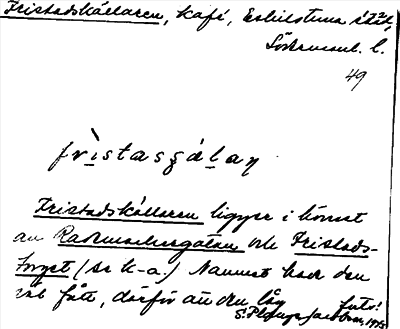 Fristadskällaren, kafé, Eskilstuna stad,
Södermanl. l.
49
frìstasçälaɳ
Fristadskällaren ligger i hörnet
av Rademachergatan och Fristads-
torget (se k-a.) Namnet har den
väl fått, därför att den låg
foto!